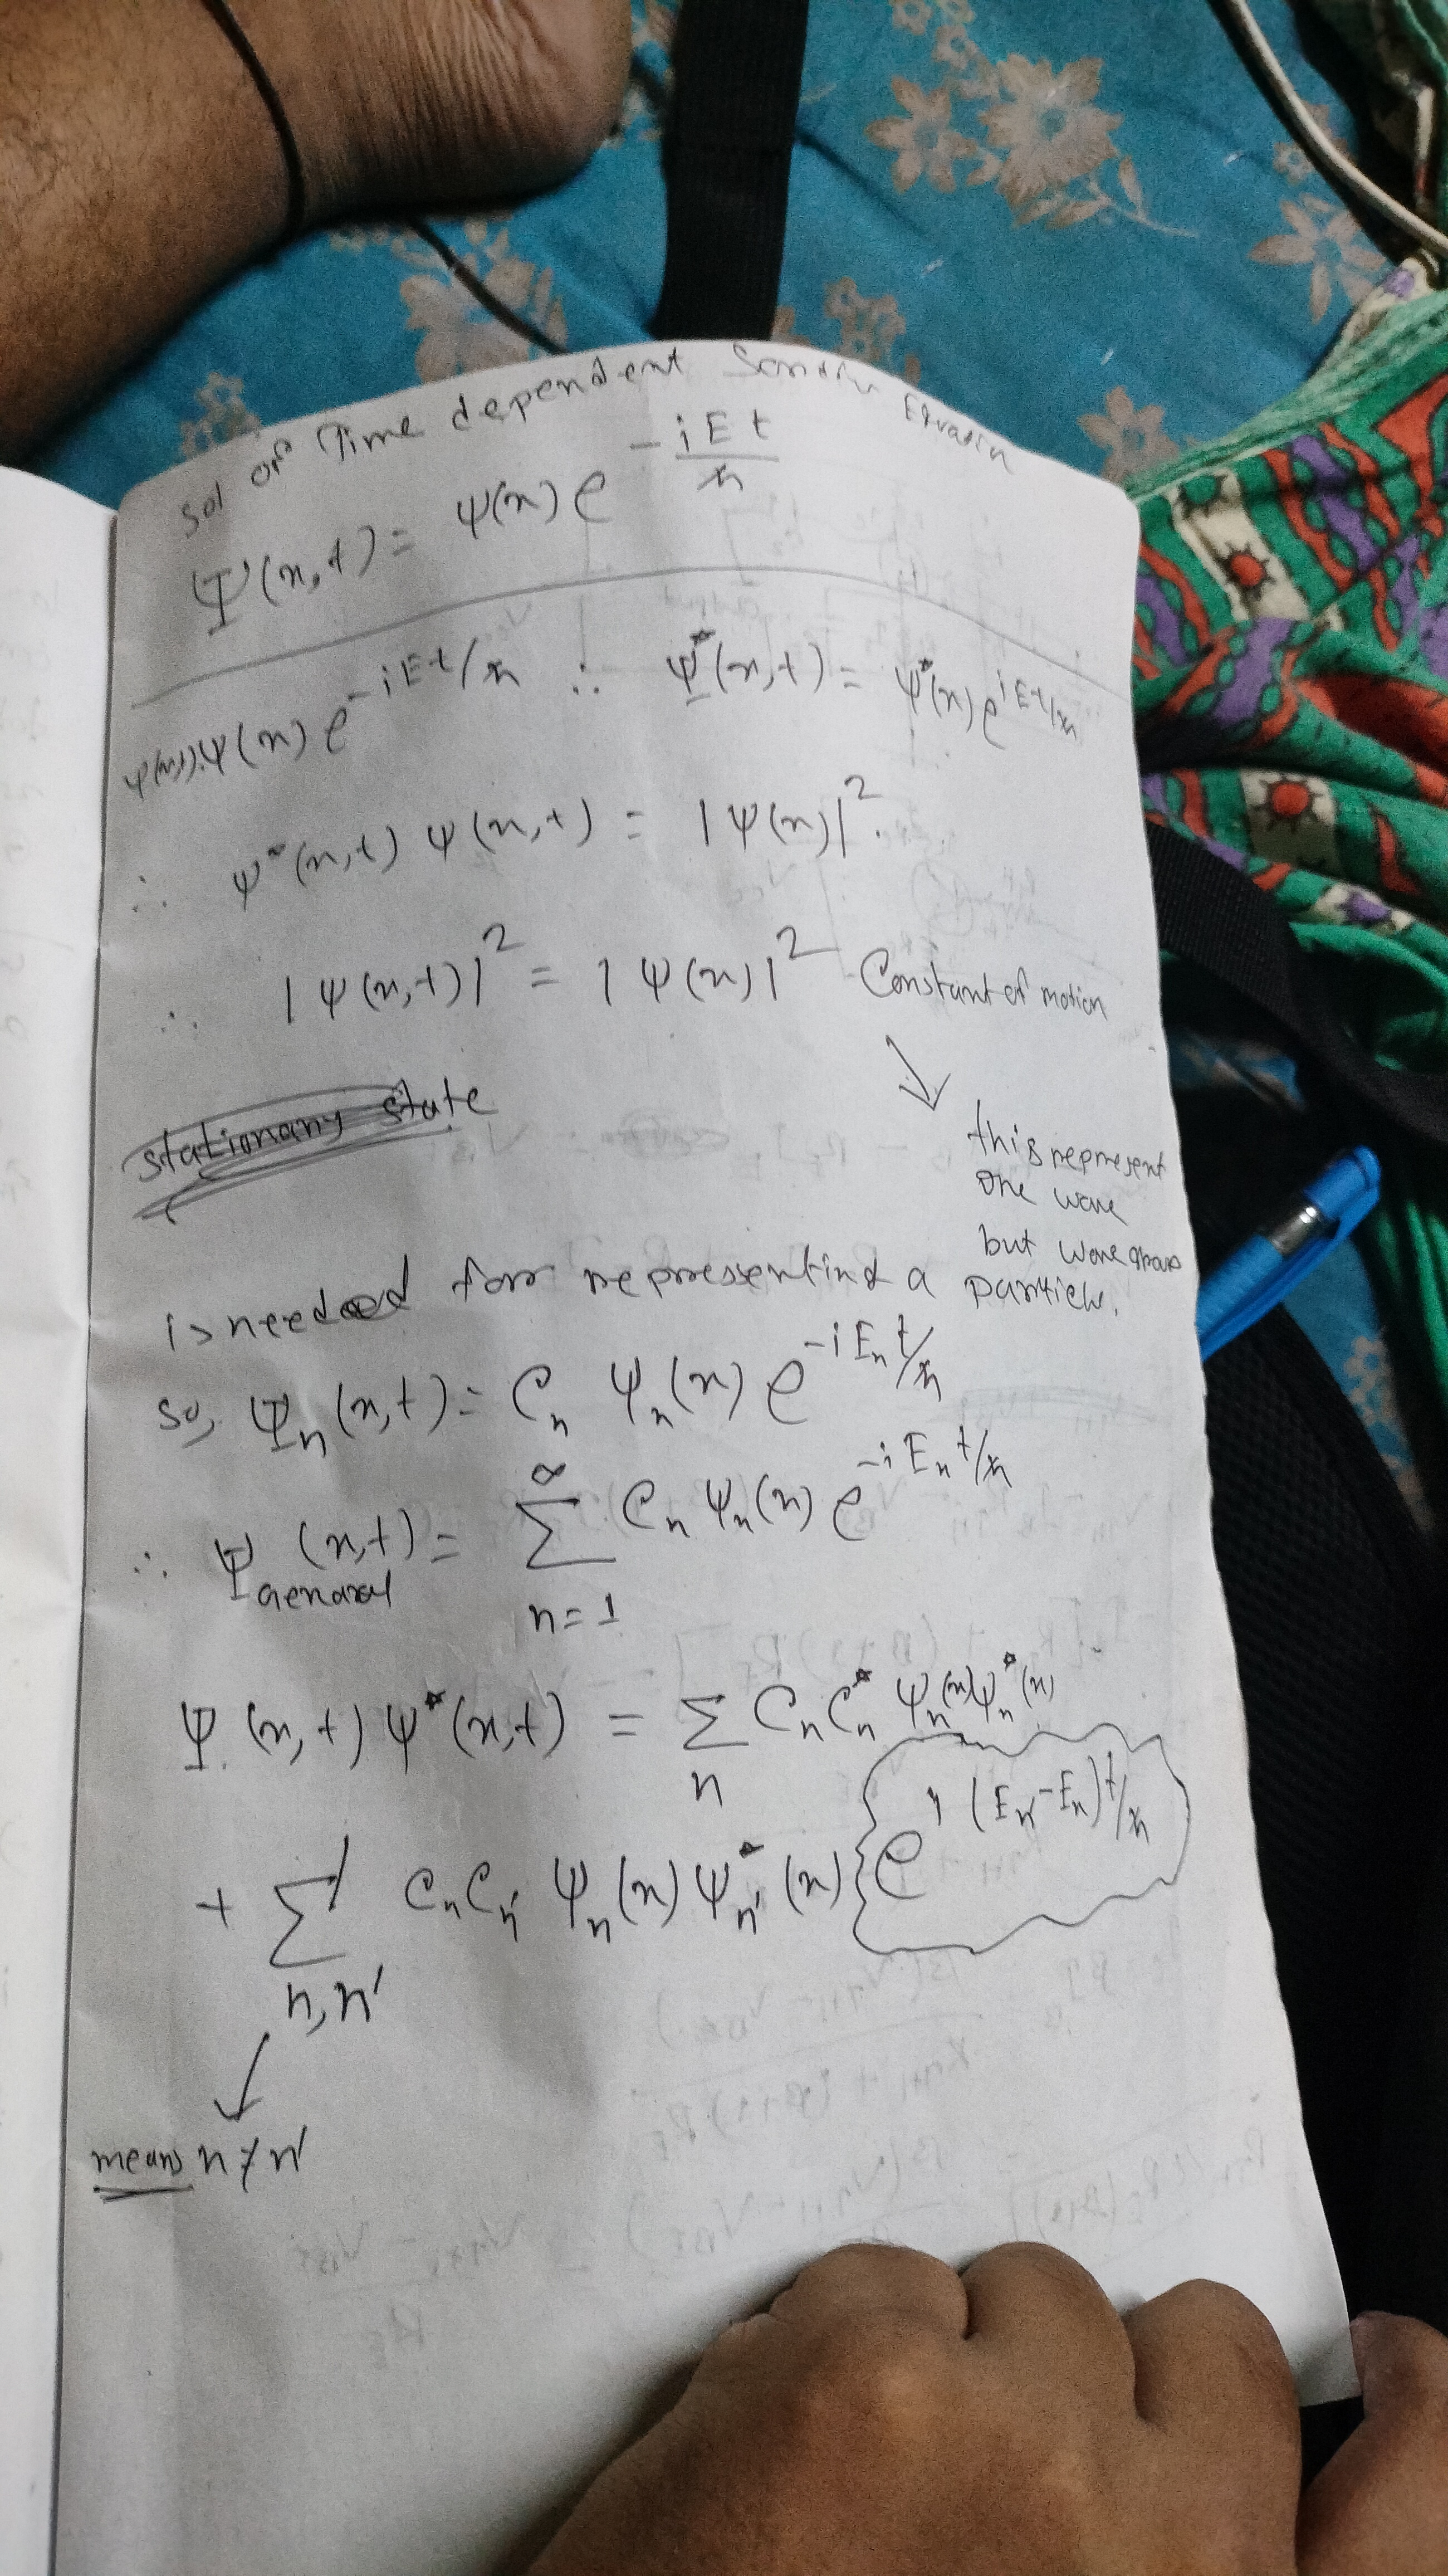 sol of Time dependent Equation
Ψ(x,t) = ψ(x) e^{-iEt/ħ}
ψ(x,t) = ψ(x) e^{-iEt/ħ} ∴ Ψ*(x,t) = ψ*(x) e^{iEt/ħ}
∴ ψ*(x,t) ψ(x,t) = |ψ(x)|².
∴ |ψ(x,t)|² = |ψ(x)|² Constant of motion
↓
stationary state
this represent
one wave
but wave group
is needed for representing a particle.
so, Ψₙ(x,t) = Cₙ ψₙ(x) e^{-iEₙt/ħ}
∴ Ψ_general (x,t) = ∑_{n=1}^{∞} Cₙ ψₙ(x) e^{-iEₙt/ħ}
Ψ(x,t) ψ*(x,t) = ∑_n Cₙ Cₙ* ψₙ(x) ψₙ*(x)
+ ∑'_{n,n'} Cₙ Cₙ' ψₙ(x) ψ*ₙ'(x) e^{i(Eₙ'-Eₙ)t/ħ}
↓
means n ≠ n'